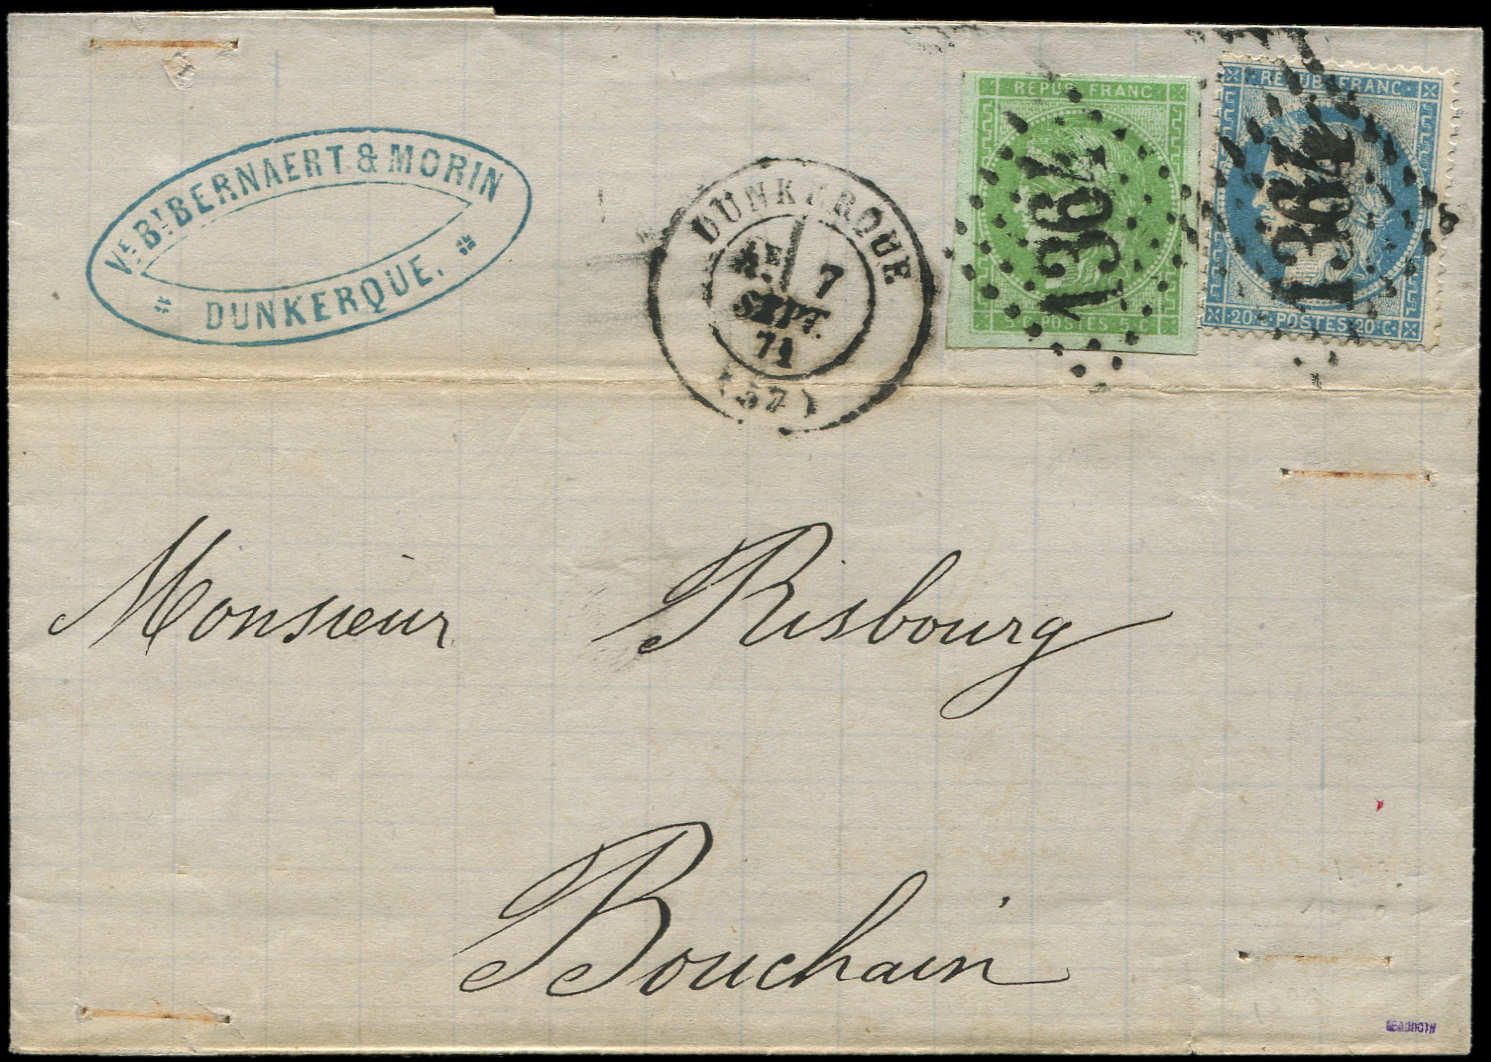 Ve Bt BERNAERT & MORIN
DUNKERQUE.
DUNKERQUE
7
SEPT.
71
(57)
REPUB. FRANC
POSTES
1364
REPUB. FRANC.
20 C. POSTES 20 C.
1364
Monsieur Risbourg
Bouchain